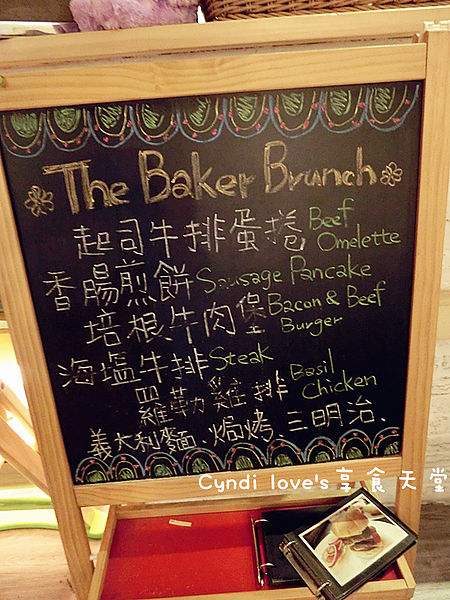 The Baker Brunch
起司牛排蛋捲 Beef Omelette
香腸煎餅 Sausage Pancake
培根牛肉堡 Bacon & Beef Burger
海塩牛排 Steak
羅勒雞排 Basil Chicken
義大利麵、焗烤、三明治、
Cyndi love's享食天堂